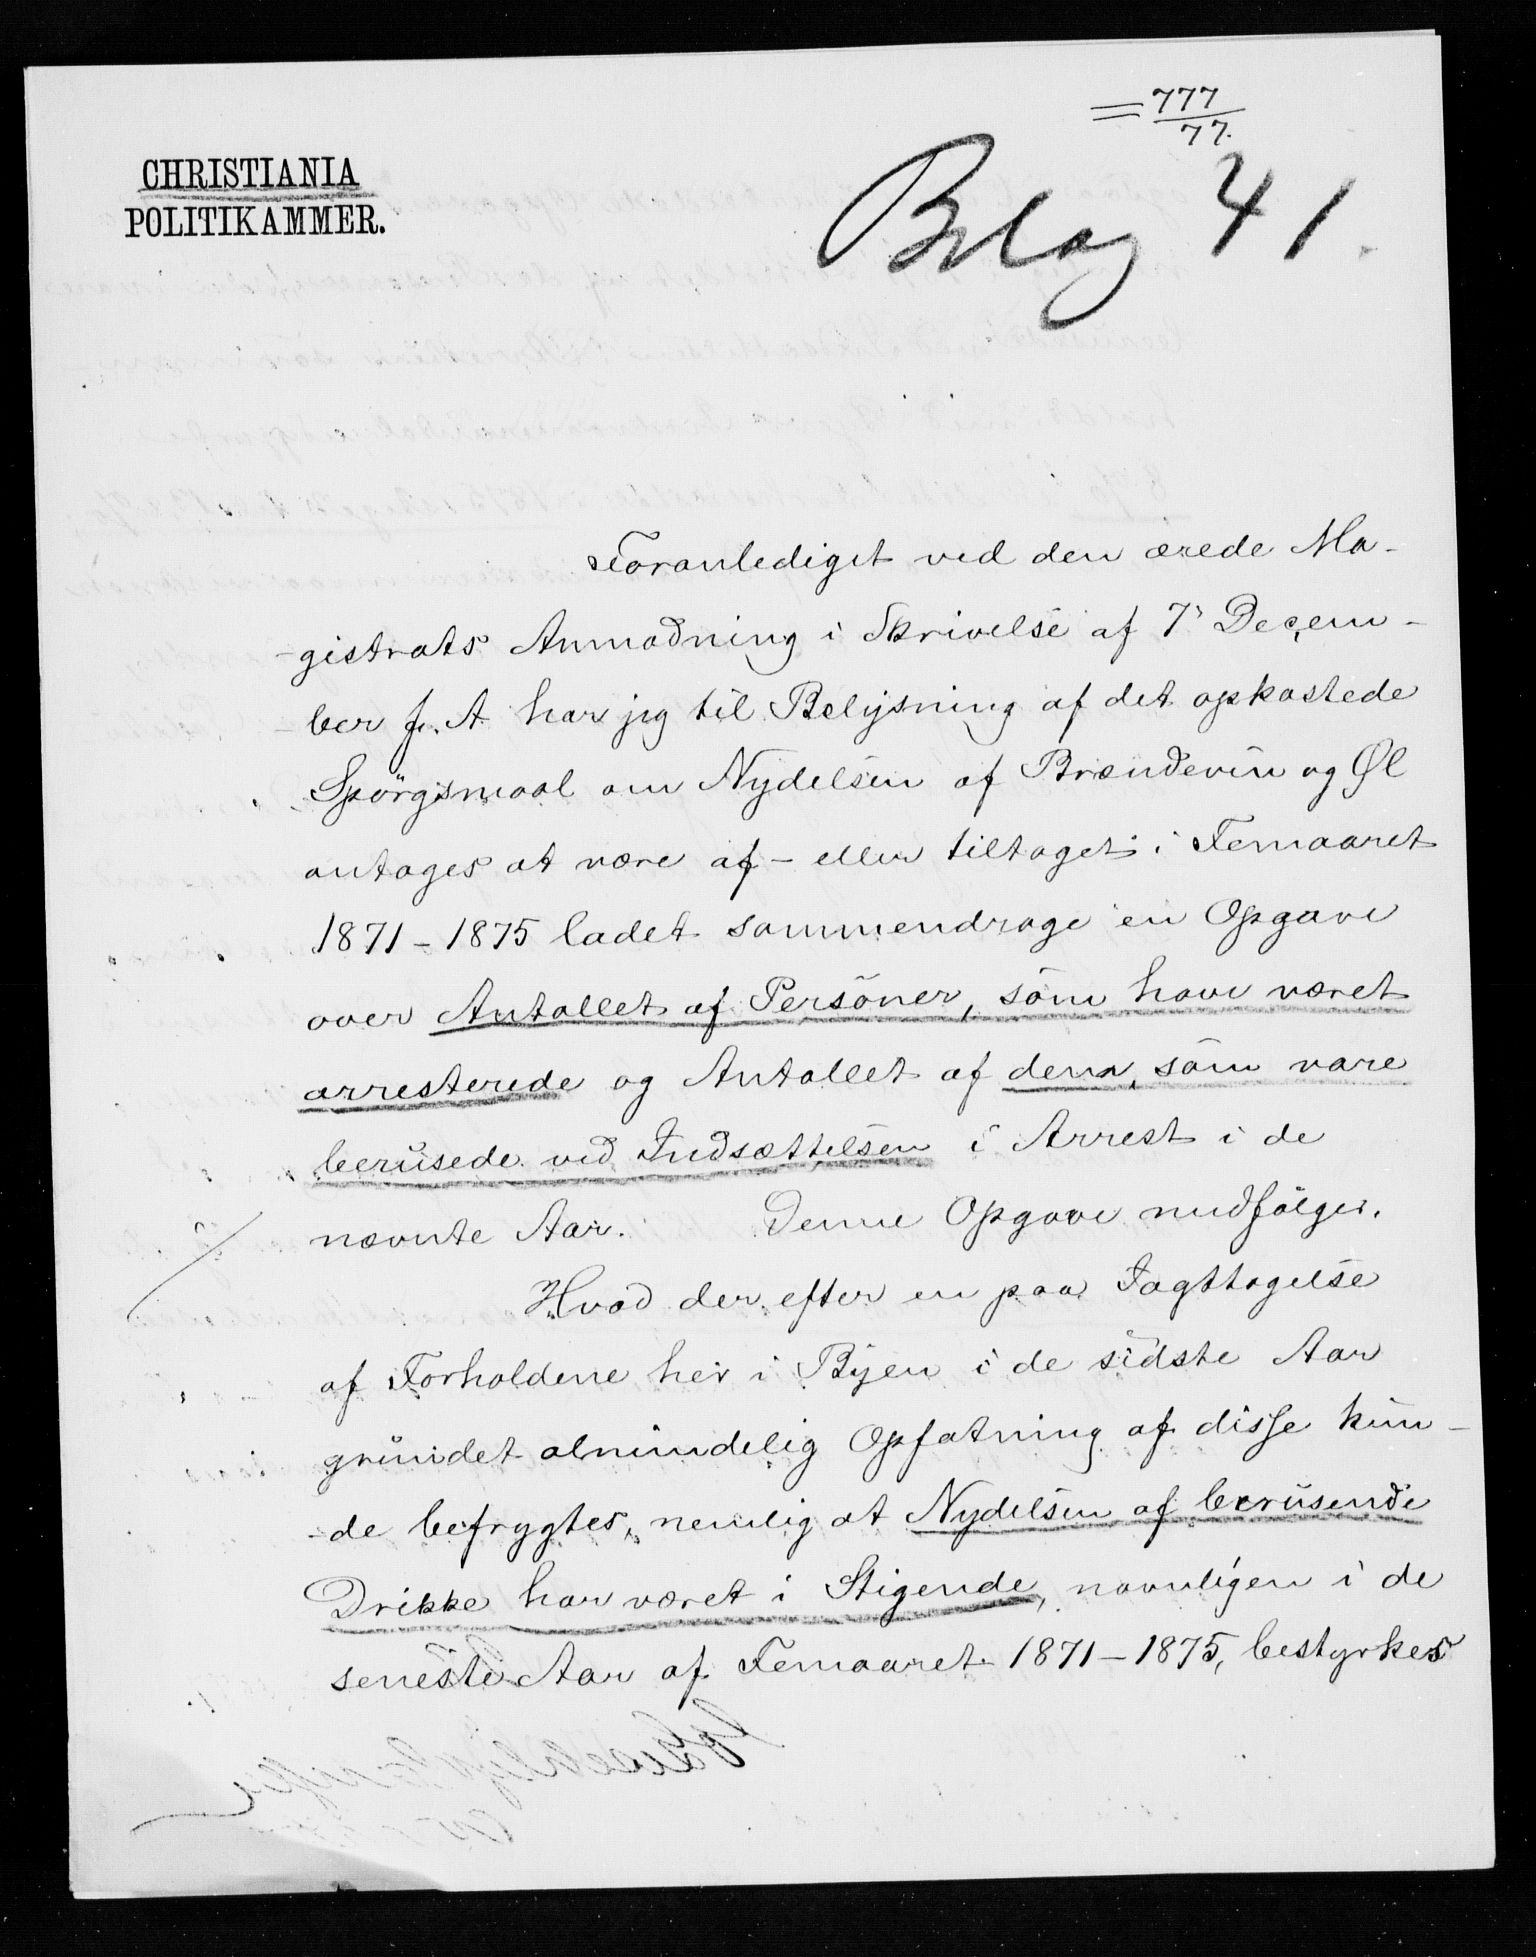 = 777
77.
CHRISTIANIA
POLITIKAMMER.
Belag 41.
Foranlediget ved den ærede Ma-
-gistrats Anmodning i Skrivelse af 7' Decem-
ber f. A. har jeg til Belysning af det opkastede
Spörgsmaal om Nydelsen af Brændeviin og Øl
antages at være af- eller tiltaget i Femaaret
1871-1875 ladet sammendrage en Opgave
over Antallet af Personer, som have været
arresterede og Antallet af dem, som vare
berusede ved Indsættelsen i Arrest i de
nævnte Aar. Denne Opgave medfølger.
Hvad der efter en paa Iagttagelse
af Forholdene her i Byen i de sidste Aar
grundet almindelig Opfatning af disse kun-
-de befrygtes, nemlig at Nydelsen af berusende
Drikke har været i Stigende, navnligen i de
seneste Aar af Femaaret 1871-1875, bestyrkes